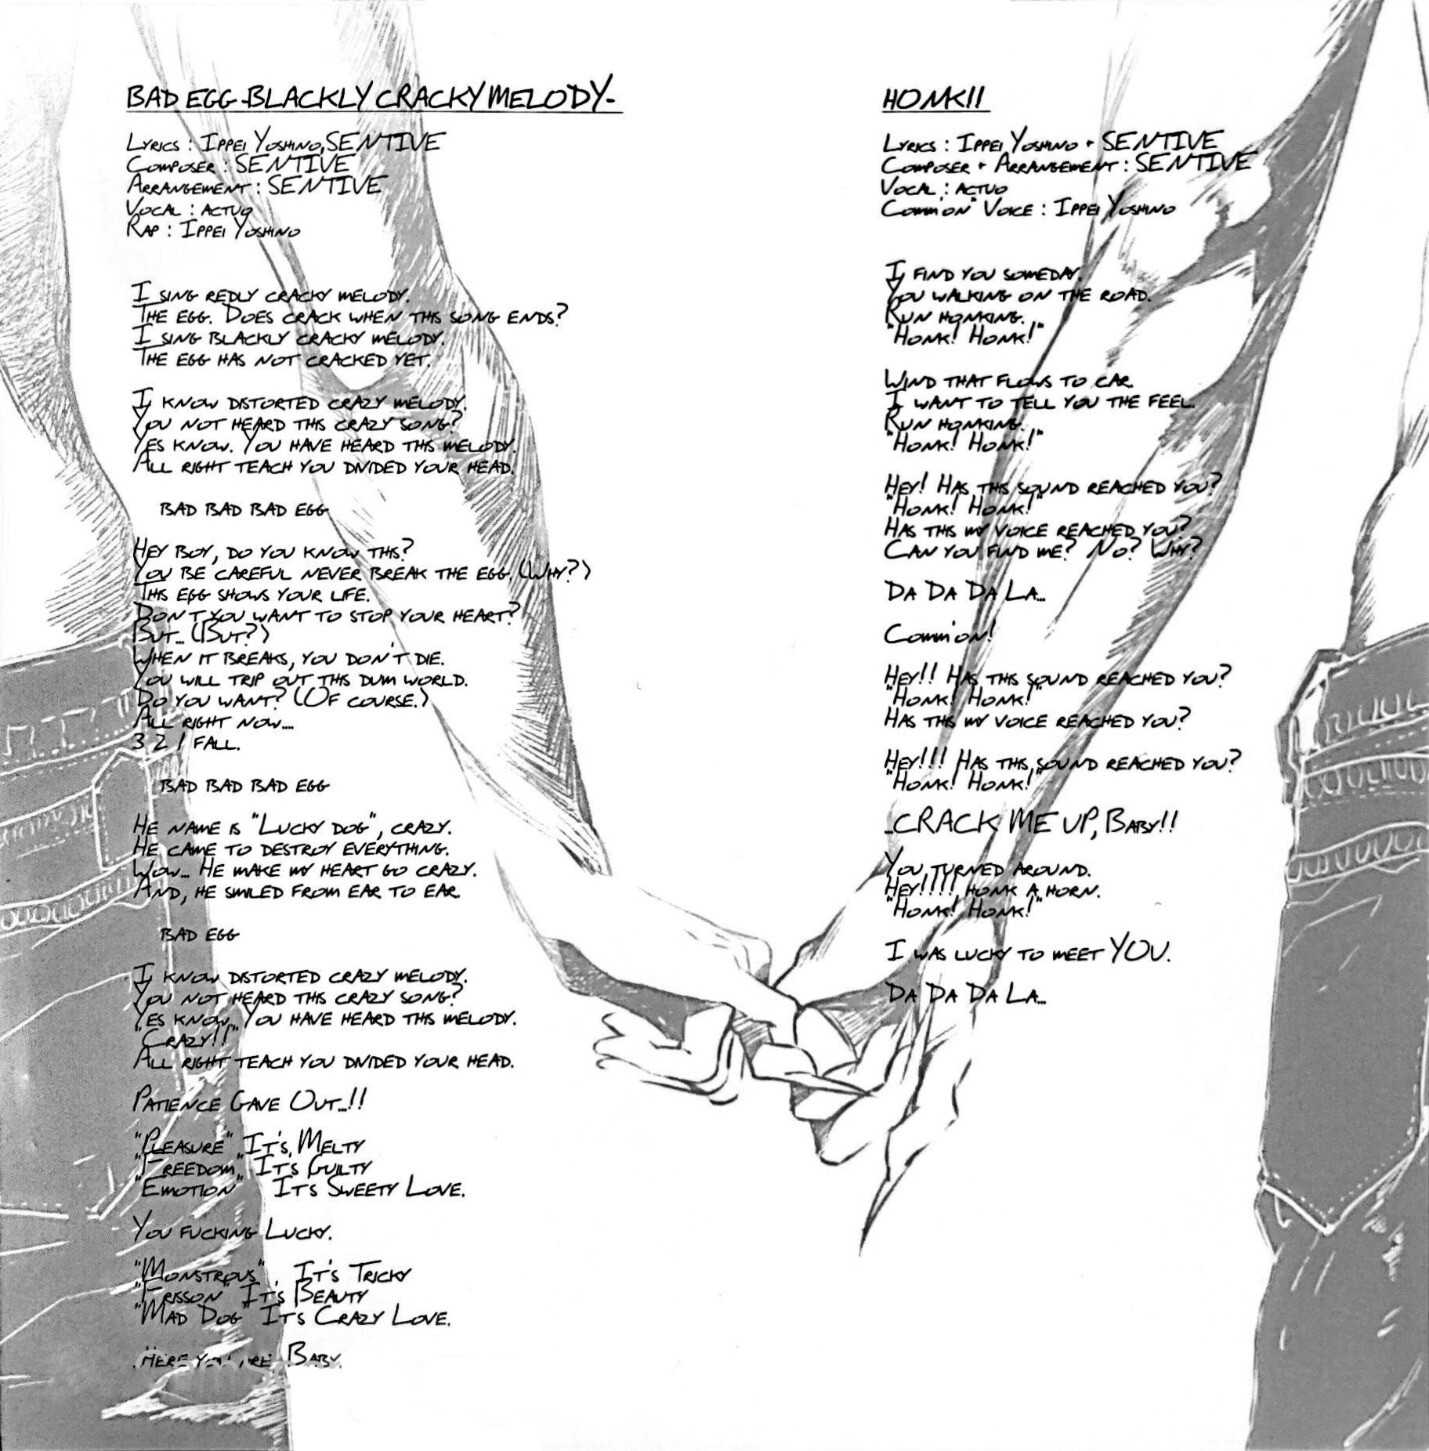 BAD EGG -BLACKLY CRACKY MELODY-
LYRICS : IPPEI YOSHINO, SENTIVE
COMPOSER : SENTIVE
ARRANGEMENT : SENTIVE
VOCAL : ACTUO
RAP : IPPEI YOSHINO
I SING REDLY CRACKY MELODY.
THE EGG. DOES CRACK WHEN THIS SONG ENDS?
I SING BLACKLY CRACKY MELODY.
THE EGG HAS NOT CRACKED YET.
I KNOW DISTORTED CRAZY MELODY.
YOU NOT HEARD THIS CRAZY SONG?
YES KNOW. YOU HAVE HEARD THIS MELODY.
ALL RIGHT TEACH YOU DIVIDED YOUR HEAD.
BAD BAD BAD EGG
HEY BOY, DO YOU KNOW THIS?
YOU BE CAREFUL NEVER BREAK THE EGG. (WHY?)
THIS EGG SHOWS YOUR LIFE.
DON'T YOU WANT TO STOP YOUR HEART?
BUT... (BUT?)
WHEN IT BREAKS, YOU DON'T DIE.
YOU WILL TRIP OUT THIS DUM WORLD.
DO YOU WANT? (OF COURSE.)
ALL RIGHT NOW....
3 2 1 FALL.
BAD BAD BAD EGG
HE NAME IS "LUCKY DOG", CRAZY.
HE CAME TO DESTROY EVERYTHING.
WOW... HE MAKE MY HEART GO CRAZY.
AND, HE SMILED FROM EAR TO EAR.
BAD EGG
I KNOW DISTORTED CRAZY MELODY.
YOU NOT HEARD THIS CRAZY SONG?
YES KNOW. YOU HAVE HEARD THIS MELODY.
"CRAZY!!"
ALL RIGHT TEACH YOU DIVIDED YOUR HEAD.
PATIENCE GAVE OUT...!!
"PLEASURE" IT'S MELTY
"FREEDOM" IT'S GUILTY
"EMOTION" IT'S SWEETY LOVE.
YOU FUCKING LUCKY.
"MONSTROUS" IT'S TRICKY
"FRISSON" IT'S BEAUTY
"MAD DOG" IT'S CRAZY LOVE.
HERE YOU ARE BABY.
HONK!!
LYRICS : IPPEI YOSHINO + SENTIVE
COMPOSER + ARRANGEMENT : SENTIVE
VOCAL : ACTUO
COMM'ON" VOICE : IPPEI YOSHINO
I FIND YOU SOMEDAY.
YOU WALKING ON THE ROAD.
RUN HONKING.
"HONK! HONK!"
WIND THAT FLOWS TO CAR.
I WANT TO TELL YOU THE FEEL.
RUN HONKING.
"HONK! HONK!"
HEY! HAS THIS SOUND REACHED YOU?
"HONK! HONK!"
HAS THIS MY VOICE REACHED YOU?
CAN YOU FIND ME? NO? WHY?
DA DA DA LA...
COMM'ON!
HEY!! HAS THIS SOUND REACHED YOU?
"HONK! HONK!"
HAS THIS MY VOICE REACHED YOU?
HEY!!! HAS THIS SOUND REACHED YOU?
"HONK! HONK!"
...CRACK ME UP, BABY!!
YOU TURNED AROUND.
HEY!!!! HONK A HORN.
"HONK! HONK!"
I WAS LUCKY TO MEET YOU.
DA DA DA LA...